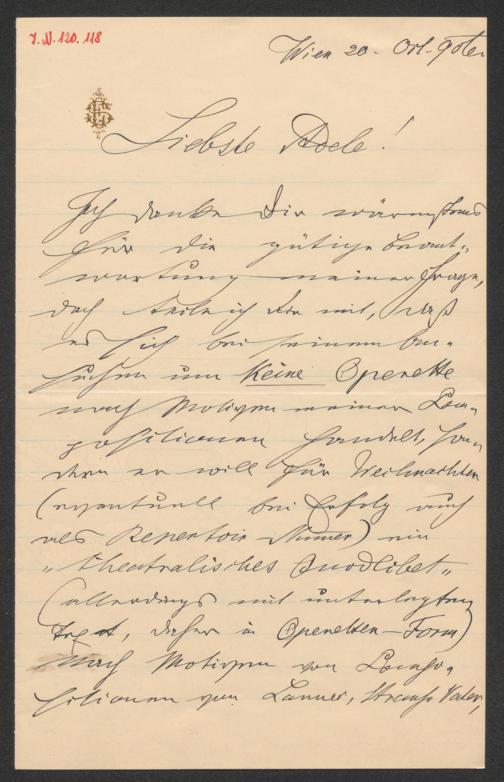 I.N. 120.118
Wien 20. Okt. 90ter
Liebste Adele!
Ich danke Dir wärmstens
für die gütige Beant-
wortung meiner Frage,
doch teile ich Dir mit, daß
es sich bei seinem An-
suchen um keine Operette
nach Motiven meiner Com-
positionen handelt, son-
dern er will für Weihnachten
(eventuell bei Erfolg auch
als Repertoir-Numer) ein
"theatralisches Quodlibet"
(allerdings mit unterlegtem
Text, daher in Operetten-Form)
nach Motiven von Compo-
sitionen von Lanner, Strauß Vater,